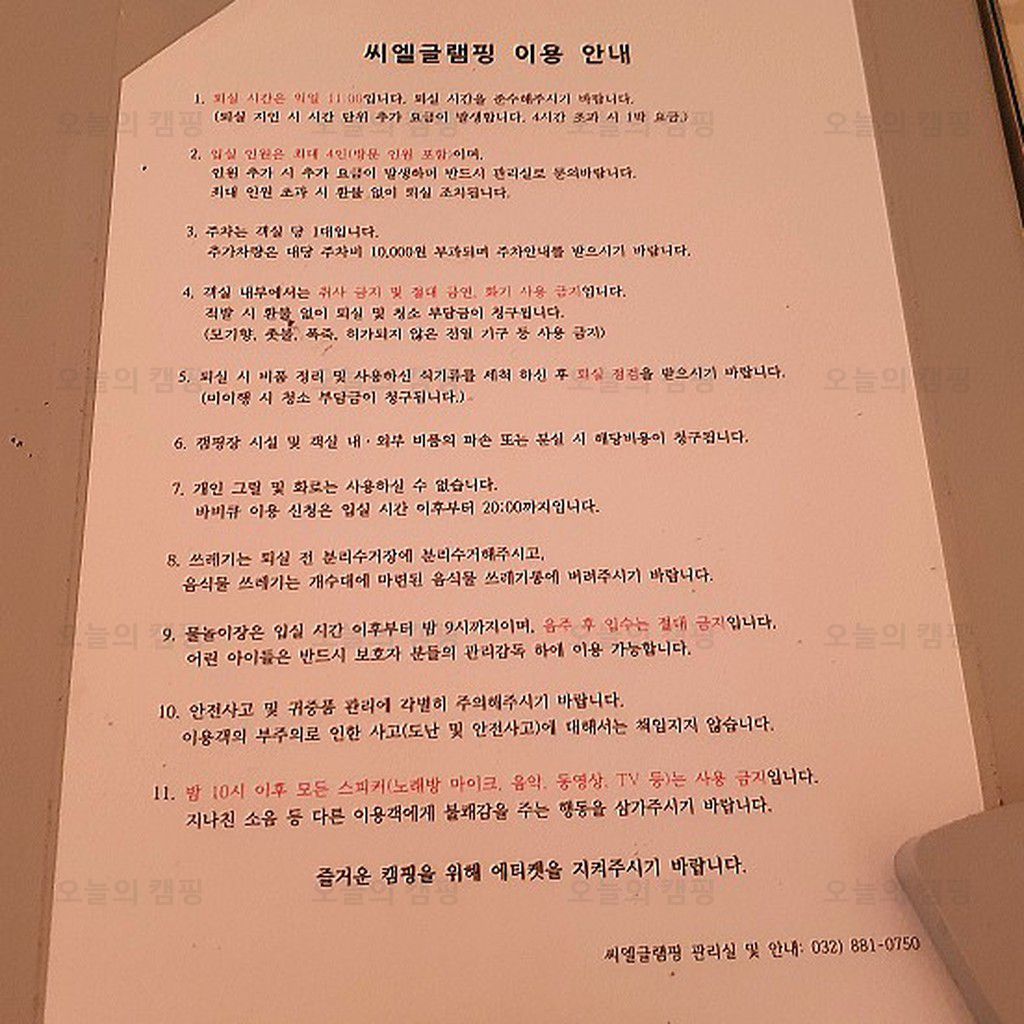 씨엘글램핑 이용 안내
1. 퇴실 시간은 익일 11:00입니다. 퇴실 시간을 준수해주시기 바랍니다.
(퇴실 지연 시 시간 단위 추가 요금이 발생합니다. 4시간 초과 시 1박 요금.)
2. 입실 인원은 최대 4인(방문 인원 포함)이며,
인원 추가 시 추가 요금이 발생하며 반드시 관리실로 문의바랍니다.
최대 인원 초과 시 환불 없이 퇴실 조치됩니다.
3. 주차는 객실 당 1대입니다.
추가차량은 대당 주차비 10,000원 부과되며 주차안내를 받으시기 바랍니다.
4. 객실 내부에서는 취사 금지 및 절대 금연, 화기 사용 금지입니다.
적발 시 환불 없이 퇴실 및 청소 부담금이 청구됩니다.
(모기향, 촛불, 폭죽, 허가되지 않은 전열 기구 등 사용 금지)
5. 퇴실 시 비품 정리 및 사용하신 식기류를 세척 하신 후 퇴실 점검을 받으시기 바랍니다.
(미이행 시 청소 부담금이 청구됩니다.)
6. 캠핑장 시설 및 객실 내·외부 비품의 파손 또는 분실 시 해당비용이 청구됩니다.
7. 개인 그릴 및 화로는 사용하실 수 없습니다.
바비큐 이용 신청은 입실 시간 이후부터 20:00까지입니다.
8. 쓰레기는 퇴실 전 분리수거장에 분리수거해주시고,
음식물 쓰레기는 개수대에 마련된 음식물 쓰레기통에 버려주시기 바랍니다.
9. 물놀이장은 입실 시간 이후부터 밤 9시까지이며, 음주 후 입수는 절대 금지입니다.
어린 아이들은 반드시 보호자 분들의 관리감독 하에 이용 가능합니다.
10. 안전사고 및 귀중품 관리에 각별히 주의해주시기 바랍니다.
이용객의 부주의로 인한 사고(도난 및 안전사고)에 대해서는 책임지지 않습니다.
11. 밤 10시 이후 모든 스피커(노래방 마이크, 음악, 동영상, TV 등)는 사용 금지입니다.
지나친 소음 등 다른 이용객에게 불쾌감을 주는 행동을 삼가주시기 바랍니다.
즐거운 캠핑을 위해 에티켓을 지켜주시기 바랍니다.
씨엘글램핑 관리실 및 안내: 032) 881-0750
오늘의 캠핑 오늘의 캠핑 오늘의 캠핑 오늘의 캠핑
오늘의 캠핑 오늘의 캠핑 오늘의 캠핑 오늘의 캠핑
오늘의 캠핑 오늘의 캠핑 오늘의 캠핑 오늘의 캠핑
오늘의 캠핑 오늘의 캠핑 오늘의 캠핑 오늘의 캠핑